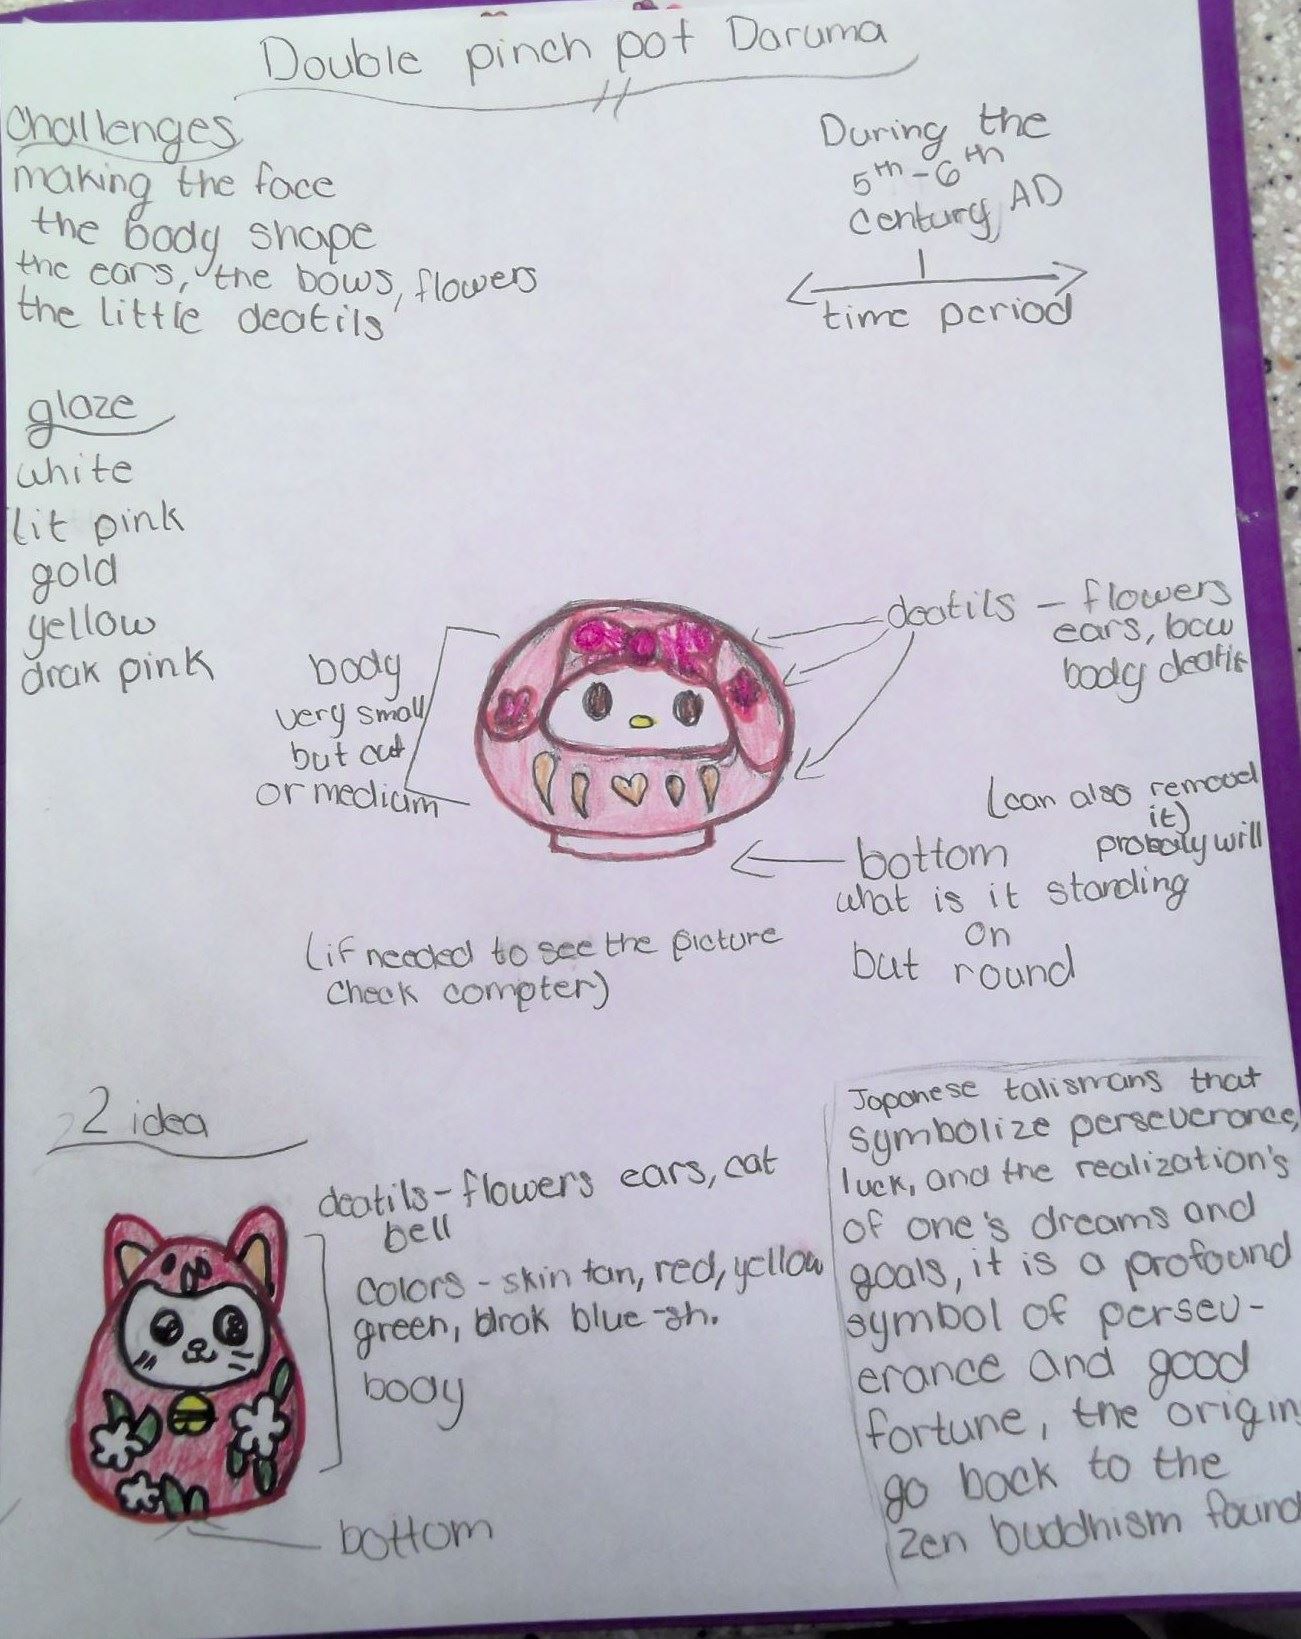 Double pinch pot Daruma
Challenges
making the face
the body shape
the ears, the bows, flowers
the little deatils
During the
5th - 6th
century AD
time period
glaze
white
lit pink
gold
yellow
drak pink
body
very small
but cut
or medium
deatils - flowers
ears, bow
body deatis
(can also remood
it)
probaly will
bottom
what is it standing
on
but round
(if needed to see the picture
check compter)
2 idea
deatils - flowers ears, cat
bell
colors - skin tan, red, yellow
green, drak blue-sh.
body
bottom
Japanese talismans that
symbolize perseverance,
luck, and the realization's
of one's dreams and
goals, it is a profound
symbol of persev-
erance and good
fortune, the origin
go back to the
zen buddhism found